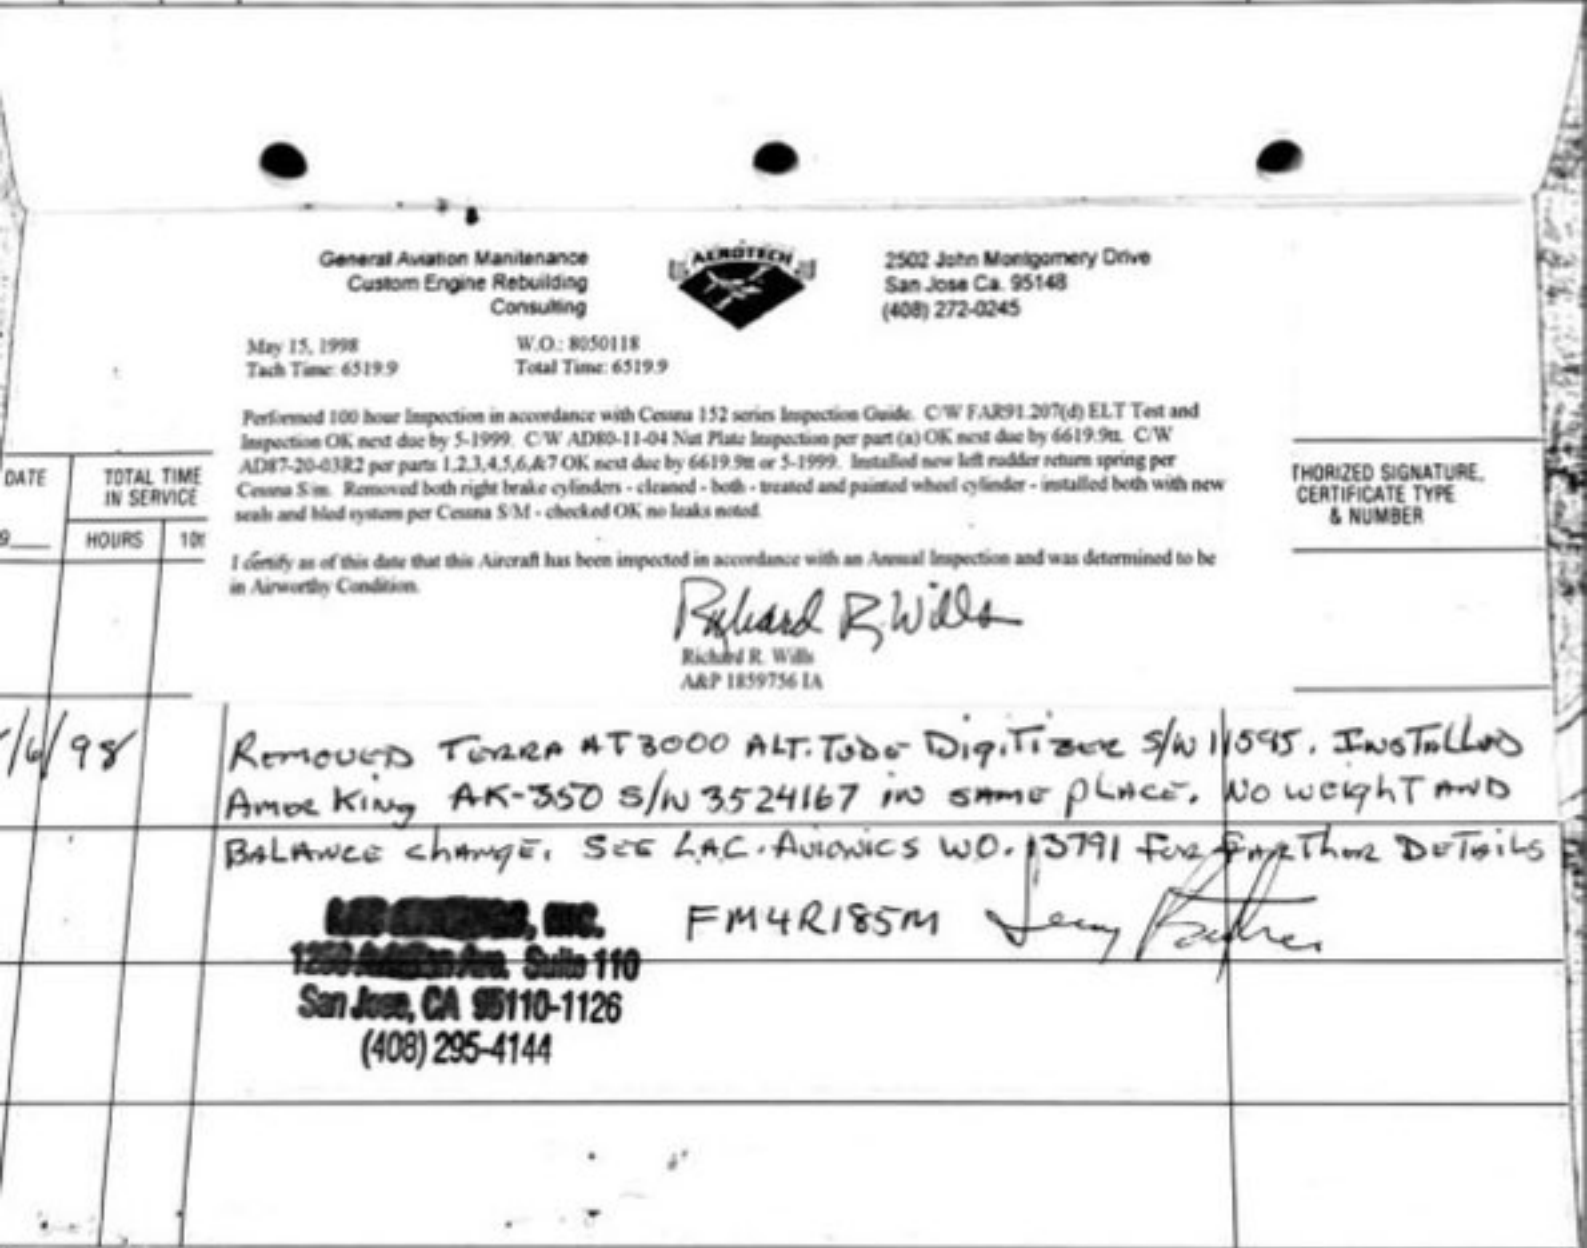 General Aviation Manitenance
Custom Engine Rebuilding
Consulting
AEROTECH
2502 John Montgomery Drive
San Jose Ca. 95148
(408) 272-0245
May 15, 1998
W.O.: 8050118
Tach Time: 6519.9
Total Time: 6519.9
Performed 100 hour Inspection in accordance with Cessna 152 series Inspection Guide. C/W FAR91.207(d) ELT Test and
Inspection OK next due by 5-1999. C/W AD80-11-04 Nut Plate Inspection per part (a) OK next due by 6619.9tt. C/W
AD87-20-03R2 per parts 1,2,3,4,5,6,&7 OK next due by 6619.9tt or 5-1999. Installed new left rudder return spring per
Cessna S/m. Removed both right brake cylinders - cleaned - both - treated and painted wheel cylinder - installed both with new
seals and bled system per Cessna S/M - checked OK no leaks noted.
I certify as of this date that this Aircraft has been inspected in accordance with an Annual Inspection and was determined to be
in Airworthy Condition.
Richard R. Wills
Richard R. Wills
A&P 1859756 IA
DATE
TOTAL TIME
IN SERVICE
HOURS
THORIZED SIGNATURE,
CERTIFICATE TYPE
& NUMBER
/6/98
REMOVED TERRA AT3000 ALT. DIGITIZER S/N 11595. INSTALLED
AMER KING AK-350 S/N 3524167 IN SAME PLACE. NO WEIGHT AND
BALANCE CHANGE. SEE LAC. AVIONICS WO. 13791 FOR FARTHER DETAILS
FM4R185M
INC.
Suite 110
San Jose, CA 95110-1126
(408) 295-4144